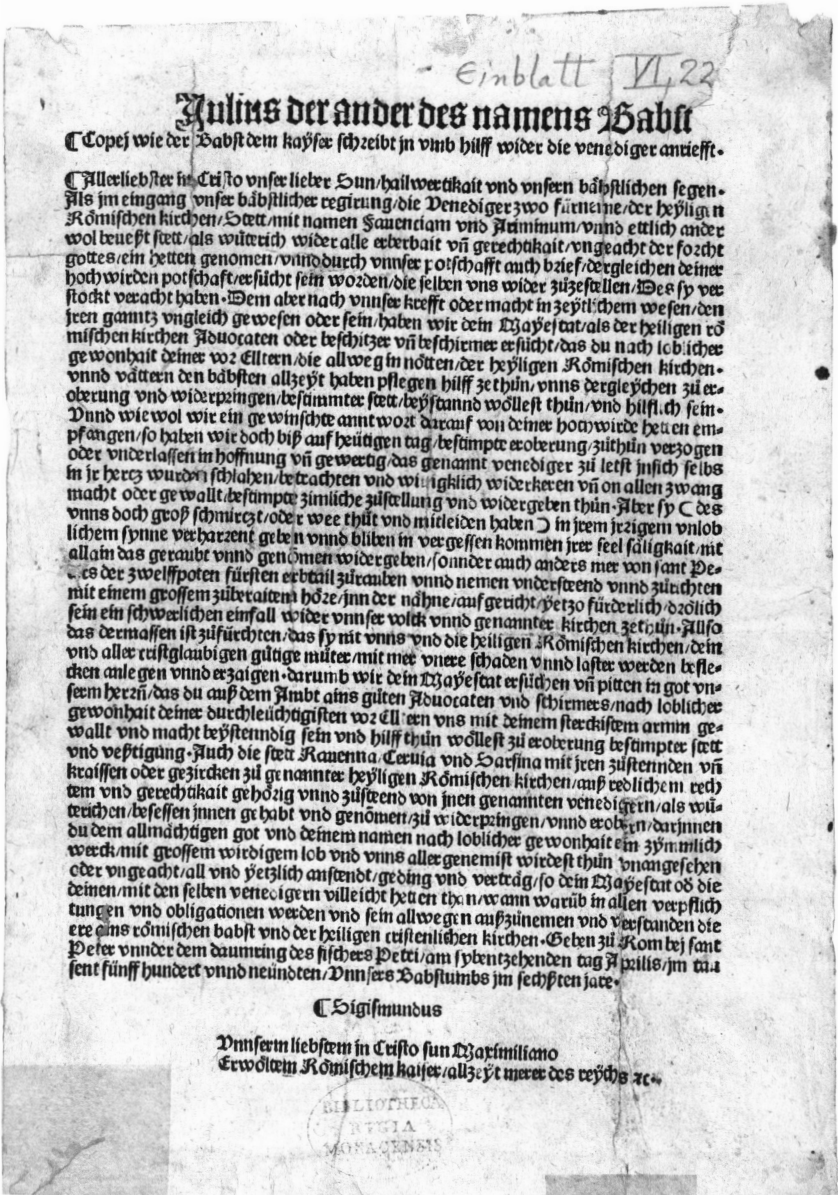 Einblatt VI, 22
Julius der ander des namens Babst
¶ Copej wie der Babst dem kayser schreibt jn vmb hilff wider die venediger anriefft.
¶ Allerliebster in Cristo vnser lieber Sun/hailwertikait vnd vnsern bäbstlichen segen.
Als jm eingang vnser bäbstlicher regirung/die Venediger zwo fürneme/der heyligen
Römischen kirchen/Stett/mit namen Fauenciam vnd Ariminum/vnnd ettlich ander
wol beueßt stett/als wüterich wider alle erberbait vñ gerechtikait/vngeacht der forcht
gottes/ein hetten genomen/vnnd durch vnnser potschafft auch brief/dergleichen deiner
hochwirden potschaft/ersücht sein worden/die selben vns wider zůzestellen/Des sy ver
stockt veracht haben. Dem aber nach vnnser krefft oder macht in zeytlichem wesen/den
jren ganntz vngleich gewesen oder sein/haben wir dein Mayestat/als der heiligen rö
mischen kirchen Aduocaten oder beschitzer vñ beschirmer ersücht/das du nach loblicher
gewonhait deiner vor Elltern/die allweg in nötten/der heyligen Römischen kirchen.
vnnd vättern den bäbsten allzeyt haben pflegen hilff zethůn/vnns dergleychen zů er-
oberung vnd widerpringen/bestimmter stett/beystannd wöllest thůn/vnd hilflich sein.
Vnnd wiewol wir ein gewinschte anntwort darauf von deiner hochwirde hetten em-
pfangen/so haben wir doch biß auf heütigen tag/bestimpte eroberung/zůthůn verzogen
oder vnderlassen in hoffnung vñ gewertig/das genannt venediger zů letst jnsich selbs
in jr hertz wurden schlahen/betrachten vnd willigklich widerkeren vñ on allen zwang
macht oder gewallt/bestimpte zimliche zůstellung vnd widergeben thůn. Aber sy ( des
vnns doch groß schmirczt/oder wee thůt vnd mitleiden haben ) in jrem jrrigem vnlob
lichem synne verharrent geben vnnd bliben in vergessen kommen jrer seel säligkait/nit
allain das geraubt vnnd genommen widergeben/sonnder auch anders mer von sant Pe-
ters der zwelffpoten fürsten erbtail zůrauben vnnd nemen vndersteend vnnd zůrichten
mit einem grossem zůberaitem höre/jnn der nähne/aufgericht/yetzo fürderlich/drölich
sein ein schwerlichen einfall wider vnnser volck vnnd genannter kirchen zethůn. Allso
das dermassen ist zůfürchten/das sy nit vnns vnd die heiligen Römischen kirchen/dein
vnd aller cristglaubigen gütige můter/mit mer vnere schaden vnnd laster werden befle-
cken anlegen vnnd erzaigen. darumb wir dein Mayestat ersüchen vñ pitten in got vn-
serm herrñ/das du auß dem Ambt ains gůten Aduocaten vnd schirmers/nach loblicher
gewonhait deiner durchleüchtigisten vor Elltern vns mit deinem sterckistem armm ge-
wallt vnd macht beystenndig sein vnd hilff thůn wöllest zů eroberung bestimpter stett
vnd veßtigung. Auch die stett Rauenna/Ceruia vnd Sarsina mit jren zůstennden vñ
kraissen oder gezircken zů genannter heyligen Römischen kirchen/auß redlichem rech
tem vnd gerechtikait gehörig vnnd zůsteend von jnen genannten venedigern/als wü-
terichen/besessen jnnen gehabt vnd genomen/zů widerpringen/vnnd erobern/darjnnen
du dem allmächtigen got vnd deinem namen nach loblicher gewonhait ein zymmlich
werck/mit grossem wirdigem lob vnd vnns aller genemist wirdest thůn vnangesehen
oder vngeacht/all vnd yetzlich anstendt/geding vnd verträg/so dein Mayestat oð die
deinen/mit den selben venedigern villeicht hetten than/wann warüb in allen verpflich
tungen vnd obligationen werden vnd sein allwegen außzůnemen vnd verstanden die
ere ains römischen babst vnd der heiligen cristenlichen kirchen. Geben zů Rom bej sant
Peter vnnder dem daumring des fischers Petri/am sybentzehenden tag Aprilis/jm tau
sent fünff hundert vnnd neündten/Vnnsers Babstumbs jm sechßten jare.
¶ Sigismundus
Vnnserm liebstem in Cristo sun Maximiliano
Erwöltem Römischem kaiser/allzeyt merer des reychs ꝛc.
BIBLIOTHECA
REGIA
MONACENSIS